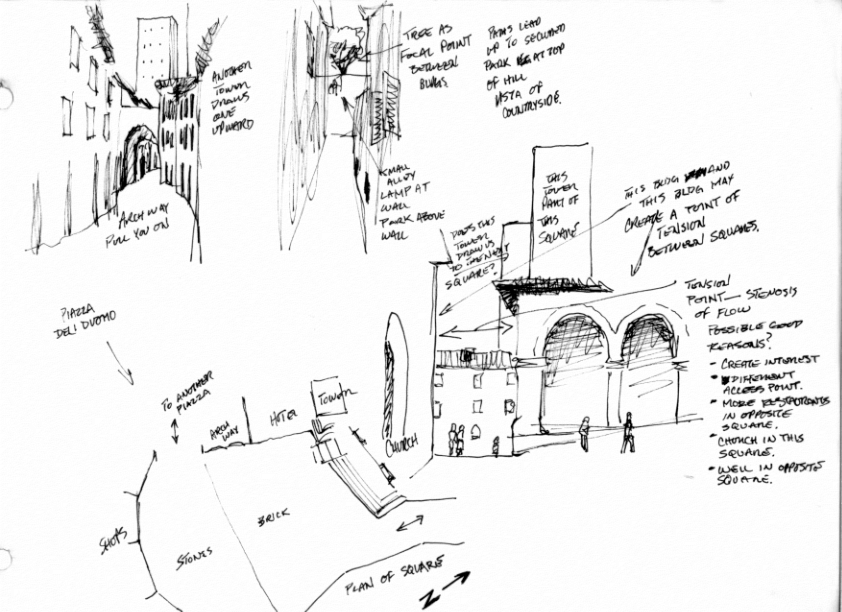 ANOTHER
TOWER
DRAWS
ONE
UPWARD
ARCHWAY
PULL YOU ON
TREE AS
FOCAL POINT
BETWEEN
BLDGS
PATHS LEAD
UP TO SECOND
PARK AT TOP
OF HILL
VISTA OF
COUNTRYSIDE.
SMALL
ALLEY
LAMP AT
WALL
PARK ABOVE
WALL
DOES THIS
TOWER
DRAW US
TO NEXT
SQUARE?
THIS
TOWER
PART OF
THIS
SQUARE
THIS BLDG AND
THIS BLDG MAY
CREATE A POINT OF
TENSION
BETWEEN SQUARES.
TENSION
POINT — STENOSIS
OF FLOW
POSSIBLE GOOD
REASONS?
- CREATE INTEREST
• DIFFERENT
ACCESS POINT.
• MORE RESTAURANTS
IN OPPOSITE
SQUARE.
• CHURCH IN THIS
SQUARE.
• WELL IN OPPOSITE
SQUARE.
PIAZZA
DELI DUOMO
TO ANOTHER
PIAZZA
ARCH
WAY
HOTEL
TOWER
CHURCH
SHOPS
STONES
BRICK
PLAN OF SQUARE
N